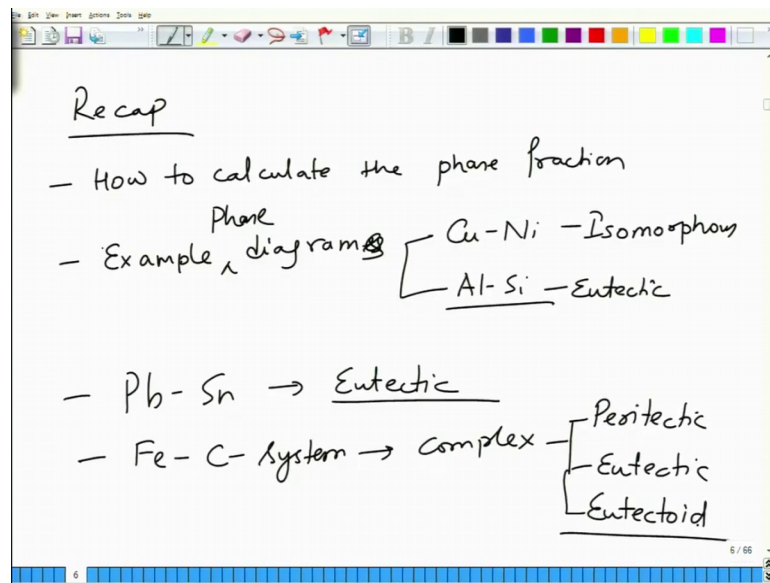 File Edit View Insert Actions Tools Help
B I
Recap
- How to calculate the phase fraction
- Example phase diagrams
Cu-Ni - Isomorphous
Al-Si - Eutectic
- Pb-Sn → Eutectic
- Fe-C-system → complex
Peritectic
Eutectic
Eutectoid
6 / 66
6